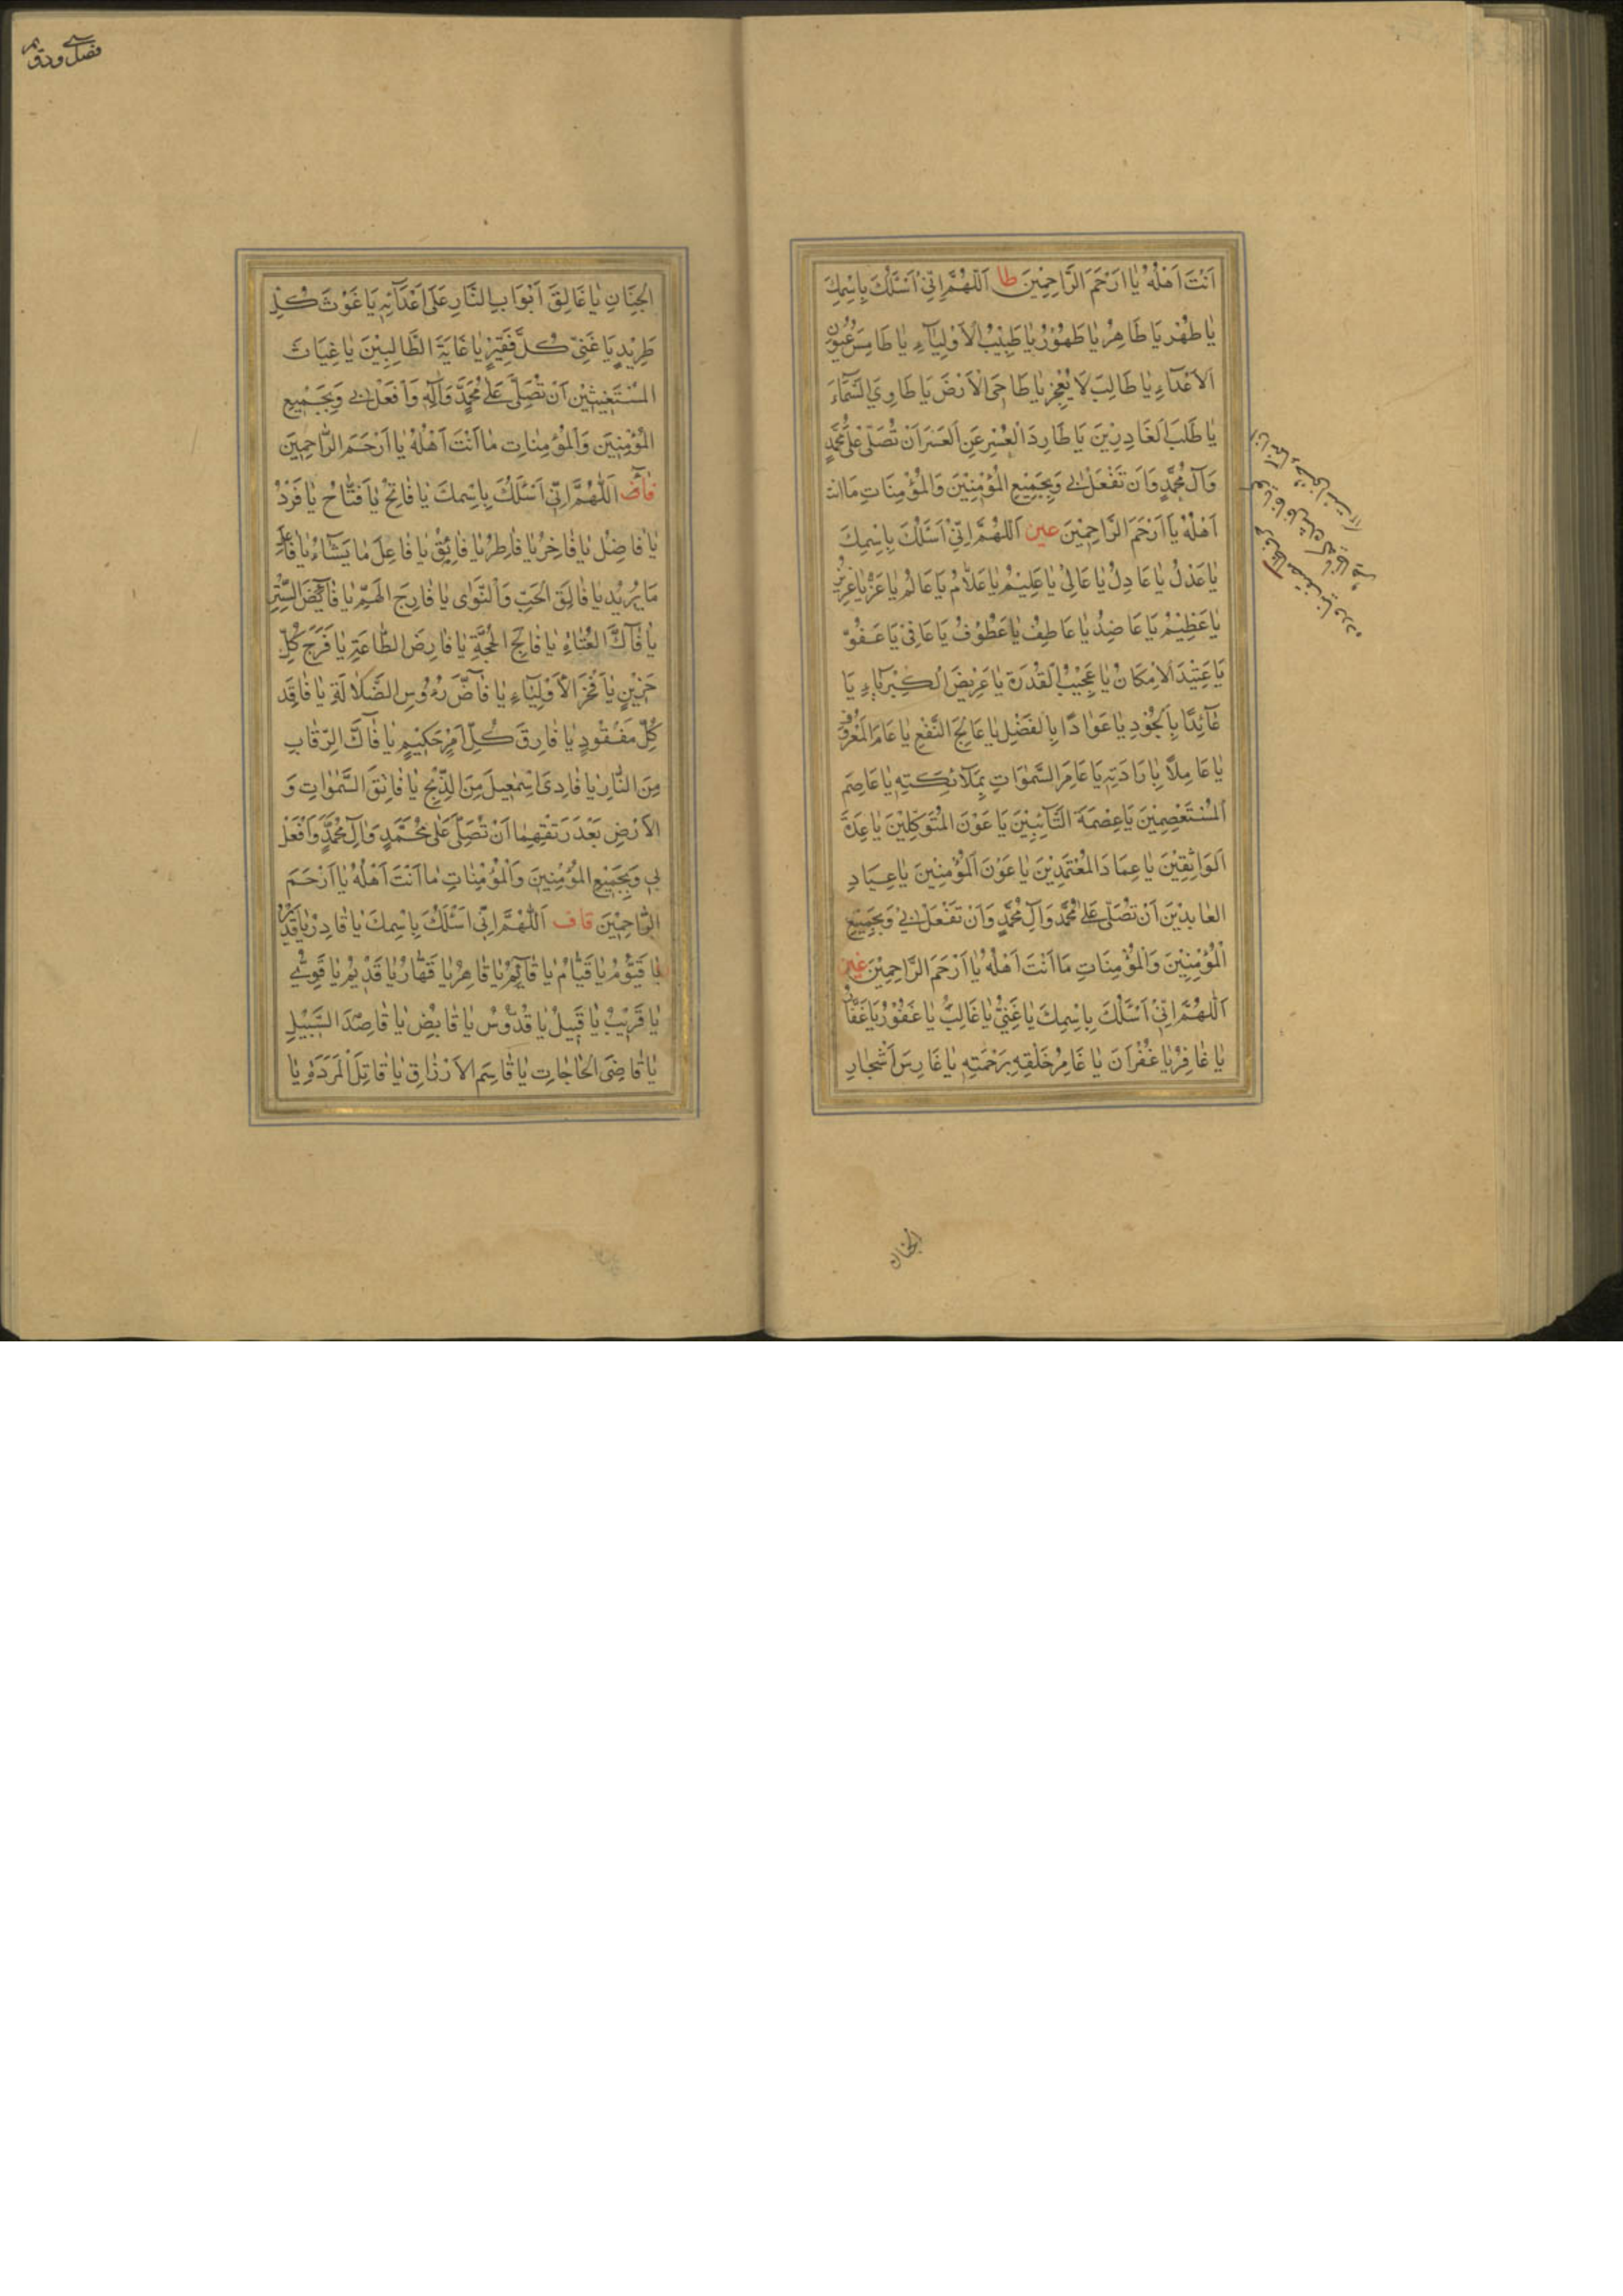 اَنْتَ اَهْلُهُ يٰا اَرْحَمَ الرَّاحِمْينَ طا اَللّهُمَّ اِنّى اَسْئَلُكَ بِاسْمِكَ
يٰا طُهْرُ يَا طَاهِرُ يٰا طَهُوْرُ يٰا طَبِيْبَ الْاَوْلِيَآءِ يٰا طَامِسَ عُيُونِ
اَلاَعْدَآءِ يٰا طَالِبَ لَا يُعْجِزُ يٰا طَاحِىَ الْاَرْضَ يَا طَاوِيَ السَّمَآءَ
يٰا طَلَبَ الغَادِرِيْنَ يَا طَارِدَ الْعُسْرِ عَنِ العَسَرَ اَنْ تُصَلّىَ عَلىٰ مُحَمَّدٍ
وَآلِ مُحَمَّدٍ وَاَنْ تَفْعَلَ بى وَبِجَمِيْعِ المُؤْمِنْيْنَ وَالمُؤْمِنَاتِ مَا انت
اَهْلُهْ يٰا اَرْحَمَ الرَّاحِمْيْنَ عين اَللّهُمَّ اِنّىْ اَسْئَلُكَ بِاسْمِكَ
يٰا عَدْلُ يٰا عَادِلُ يٰا عَالِىْ يٰا عَلِيْمُ يٰا عَلّامُ يَا عَالمُ يٰا عَزُّ يٰا عَزِيْزُ
يٰا عَظِيْمُ يَا عَاضِدُ يٰا عَاطِفُ يٰا عَطُوْفُ يَا عَافِىْ يَا عَفُوّ
يَا عَتِيْدَ الْاِمْكَانُ يٰا عَجِيْبُ القُدْرَة يٰا عَرِيْضَ الْكِبْرِيَاءِ يَا
عَآئِدًا بِالْجُوْدِ يٰا عَوّادًا بِالْفَضْلِ يٰا عَائِجَ النَّفْعِ يٰا عَامَ المَعْرُوفِ
يٰا عَامِلاً بِاِرَادَتِهِ يَا عَامِرَ السَّمٰوَاتِ بِمَلَآئِكَتِهِ يٰا عَاصِمَ
المُسْتَعْصِمِيْنَ يَا عِصْمَةَ التَّآئِبِيْنَ يَا عَوْنَ المُتَوَكِلِيْنَ يٰا عِدَّةَ
اَلوَاثِقِيْنَ يٰا عِمَادَ المُعْتَمِدِيْنَ يٰا عَوْنَ اَلْمُؤْمِنِيْنَ يٰا عِيَاذِ
العٰابِدِيْنَ اَنْ تُصَلّىَ عَلىٰ مُحَمَّدٍ وَآلِ مُحَمَّدٍ وَاَنْ تَفْعَلَ بىْ وَبِجَمِيْعِ
اْلمُؤْمِنِيْنَ وَالمُؤْمِنَاتِ مَا اَنْتَ اَهْلُهُ يٰا اَرْحَمَ الرَّاحِمِيْنَ غين
اَللّهُمَّ اِنّىْ اَسْئَلُكَ بِاسْمِكَ يٰا غَنِيُّ يٰا غَالِبُ يٰا غَفُوْرُ يَا غَفَّارُ
يٰا غٰافِرُ يٰا غُفْرَانَ يٰا غَامِرُ خَلْقِهِ بِرَحْمَتِهِ يٰا غَارِسَ اَشْجٰارِ
الجنان
فصل ورق
الجِنَانِ يٰا غَالِقَ اَبْوَابِ النَّارِ عَلَىٰ اَعْدَآئِهِ يَا غَوْثَ كُلِّ
طَرِيْدٍ يَا غَنِىّ كُلَّ فَقِيْرٍ يٰا غَايَةَ الطَّالِبِيْنَ يٰا غِيَاثَ
المُسْتَغِيثِيْنَ اَنْ تُصَلِّىَ عَلىٰ مُحَمَّدٍ وَآلِهِ وَاَفْعَلْ بى وَبِجَمِيْعِ
المُؤْمِنِيَن وَالْمُؤْمِنٰاتِ مٰا اَنْتَ اَهْلُهُ يٰا اَرْحَمَ الرّٰاحِمِيَن
فآء اَللّٰهُمَّ اِنّى اَسْئَلُكَ بِاسْمِكَ يٰا فٰاتِحُ يٰا فَتّٰاحُ يٰا فَرْدُ
يٰا فٰاضِلُ يٰا فٰاخِرُ يٰا فٰاطِرُ يٰا فٰائِقُ يٰا فٰاعِلَ مٰا يَشٰآءُ يٰا فٰاعِلَ
مَا يُرِيْدُ يٰا فٰالِقَ الحَبِّ وَالنَّوٰى يٰا فٰارِجَ الهَمِّ يٰا فٰآئِضَ السِّتْرِ
يٰا فٰآكَّ العُنٰاةِ يٰا فٰالِجَ الحُجَّةِ يٰا فٰارِضَ الطّٰاعَةِ يٰا فَرَجَ كُلِّ
حَزِيْنٍ يٰا فَخْرَ الاَوْلِيٰآءِ يٰا فٰآضَّ رُءُوْسِ الضَّلٰالَةِ يٰا فٰاقِدَ
كُلِّ مَفْقُودٍ يٰا فٰارِقَ كُلِّ اَمْرٍ حَكِيْمٍ يٰا فٰآكَّ الرِّقٰابِ
مِنَ النّٰارِ يٰا فٰادِىَ اِسْمٰعِيلَ مِنَ الذِّبْحِ يٰا فٰاتِقَ السَّمٰوٰاتِ وَ
الاَرْضِ بَعْدَ رَتْقِهِمٰا اَنْ تُصَلِّىَ عَلٰى مُحَمَّدٍ وَاٰلِ مُحَمَّدٍ وَاَفْعَلْ
بى وَبِجَمِيْعِ المُؤْمِنِيَن وَالْمُؤْمِنٰاتِ مٰا اَنْتَ اَهْلُهُ يٰا اَرْحَمَ
الرّٰاحِمِيْنَ قاف اَللّٰهُمَّ اِنّى اَسْئَلُكَ بِاسْمِكَ يٰا قٰادِرُ يٰا قَدِيْرُ
يٰا قَيُّوْمُ يٰا قَيّٰامُ يٰا قٰآئِمُ يٰا قٰاهِرُ يٰا قَهّٰارُ يٰا قَدْيمُ يٰا قَوِىُّ
يٰا قَرِيْبُ يٰا قَبِيلُ يٰا قُدُّوْسُ يٰا قٰابِضُ يٰا قٰاصِدَ السَّبِيْلِ
يٰا قٰاضِىَ الحٰاجٰاتِ يٰا قٰاسِمَ الاَرْزٰاقِ يٰا قٰاتِلَ اْلمَرَدَةِ يٰا